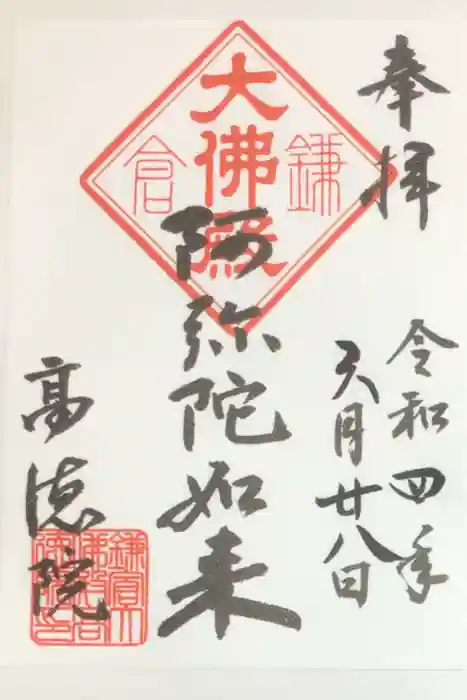 奉拝
令和四年
六月廿八日
鎌倉
大佛殿
阿弥陀如来
高徳院